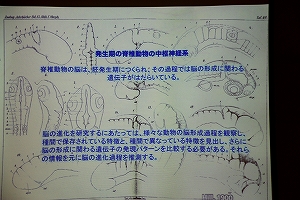 発生期の脊椎動物の中枢神経系
脊椎動物の脳は、胚発生期につくられ、その過程では脳の形成に関わる
遺伝子がはたらいている。
脳の進化を研究するにあたっては、様々な動物の脳形成過程を観察し、
種間で保存されている特徴と、種間で異なっている特徴を見出し、さらに
脳の形成に関わる遺伝子の発現パターンを比較する必要がある。それら
の情報を元に脳の進化過程を推測する。